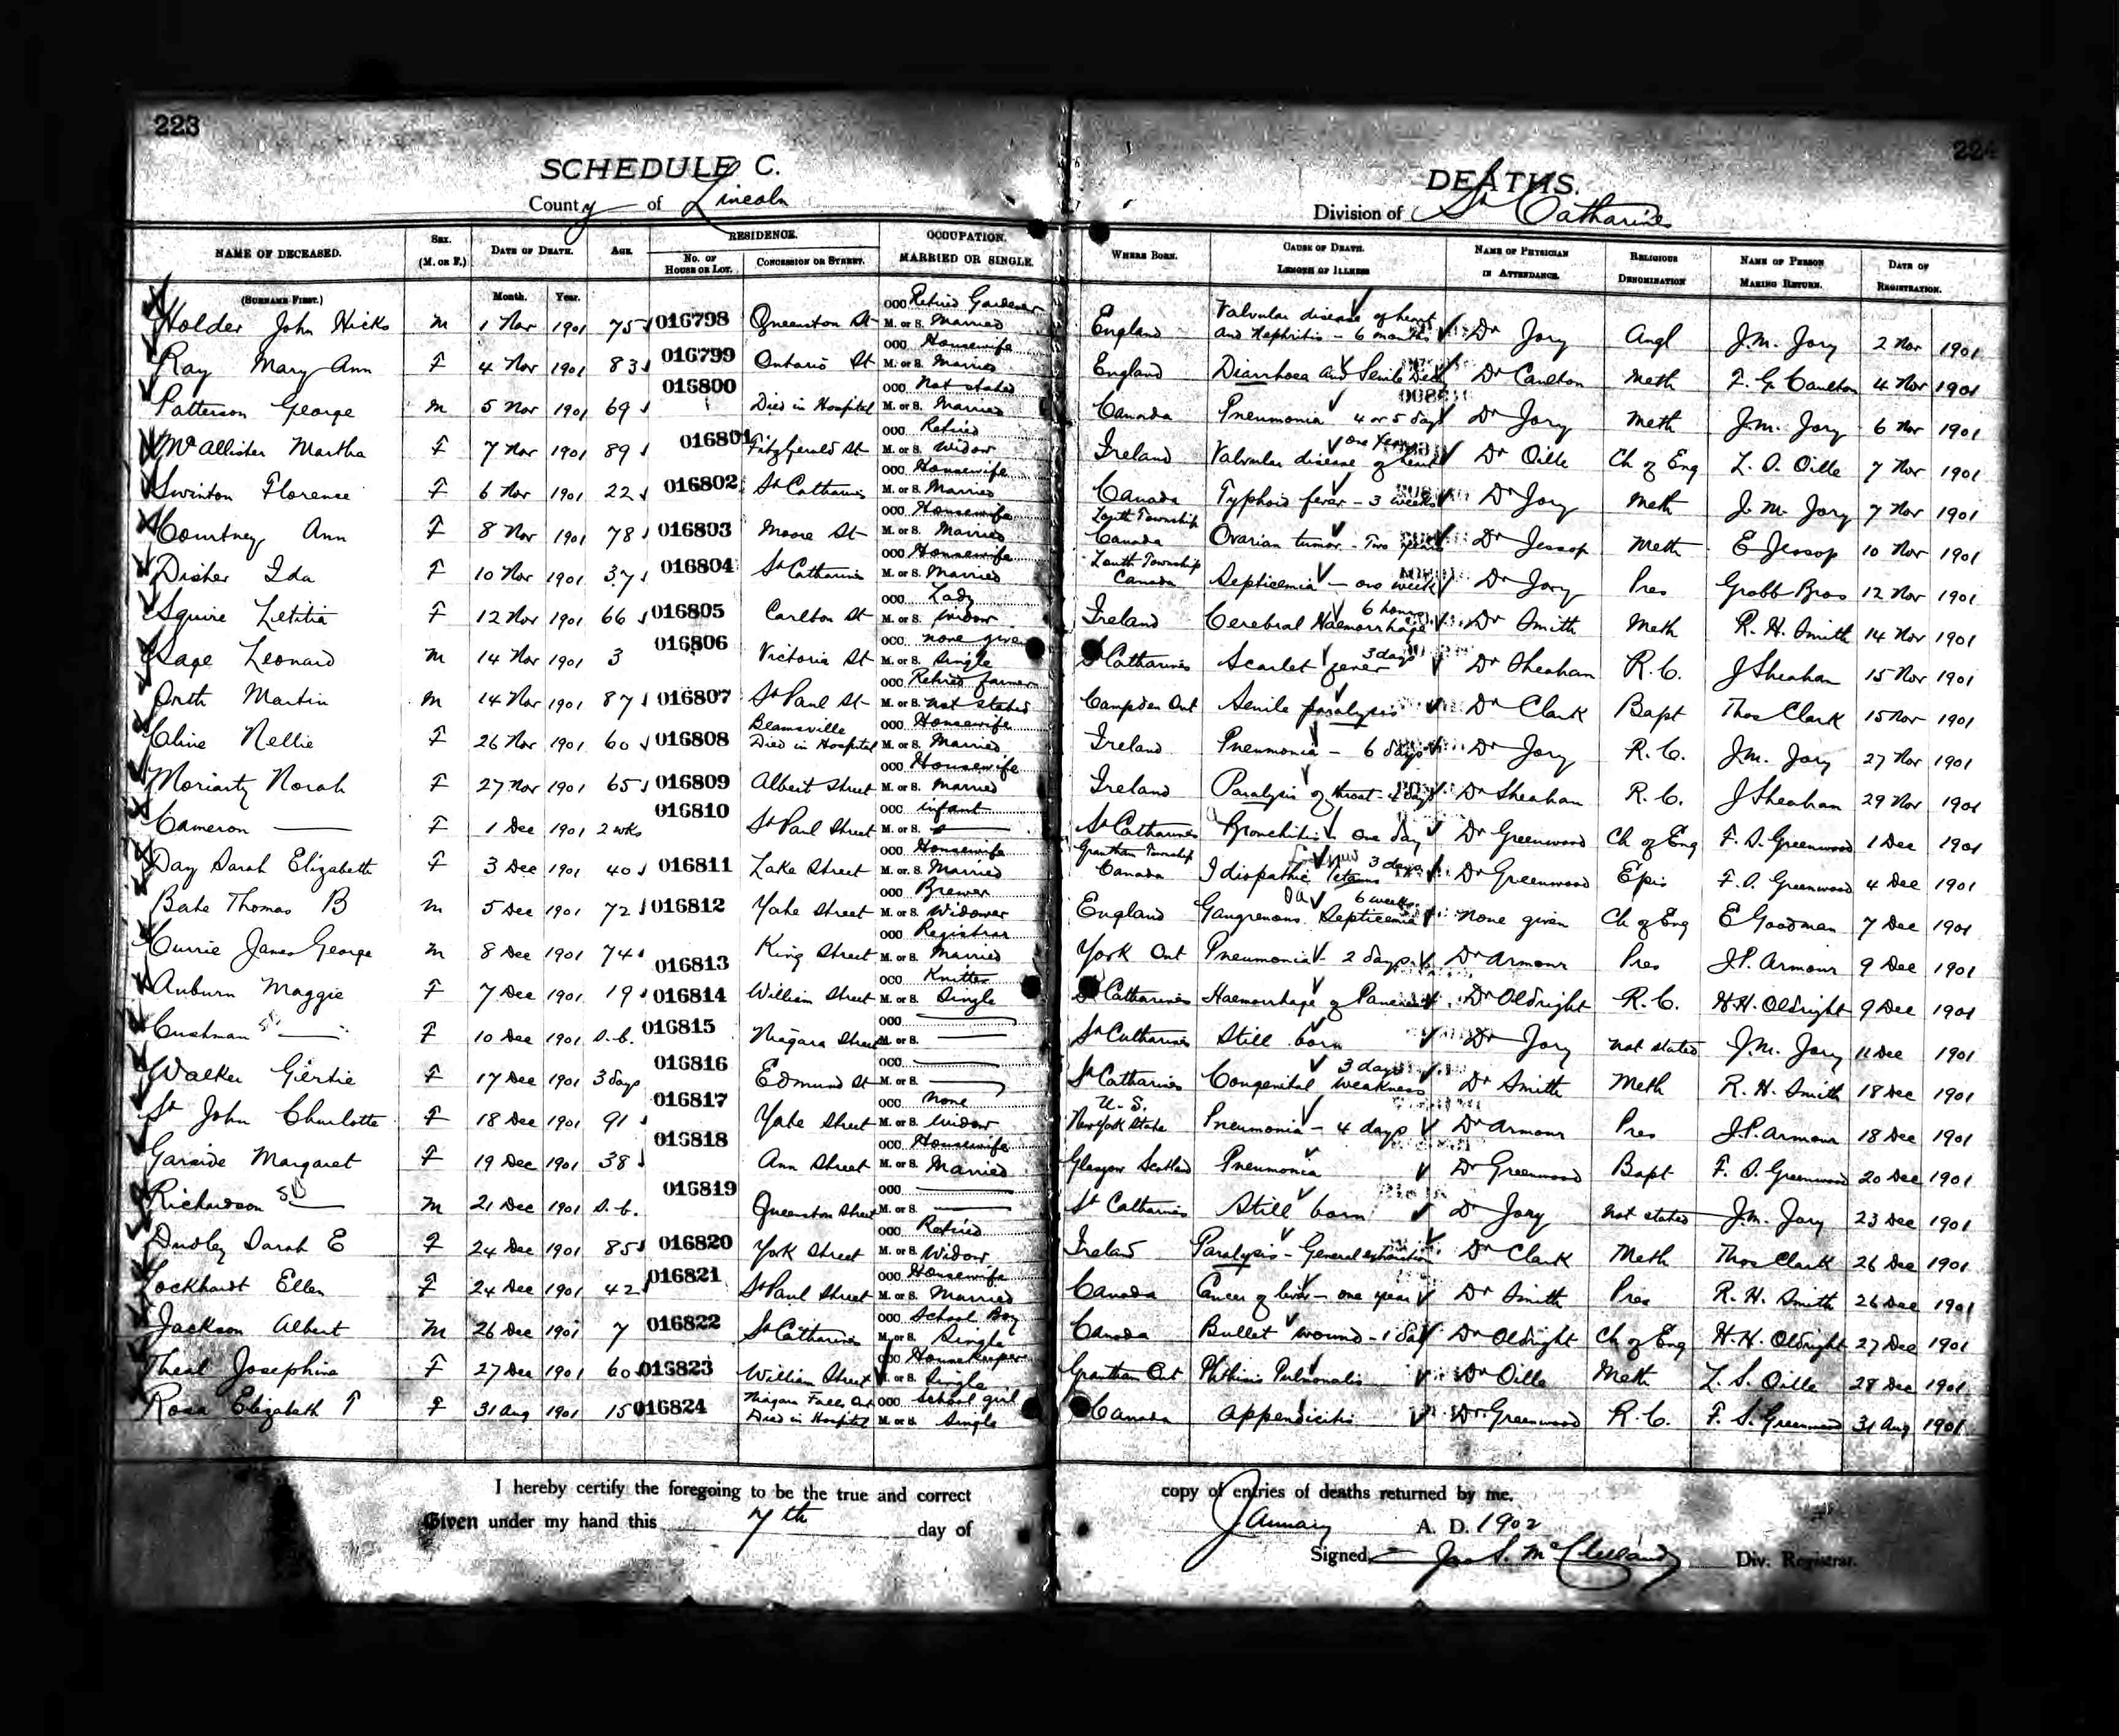 223
224
SCHEDULE C.
DEATHS.
County of Lincoln
Division of St Catharines
NAME OF DECEASED. SEX. (M. OR F.) DATE OF DEATH. AGE. RESIDENCE. NO. OF HOUSE OR LOT. CONCESSION OR STREET. OCCUPATION. MARRIED OR SINGLE. WHERE BORN. CAUSE OF DEATH. LENGTH OF ILLNESS NAME OF PHYSICIAN IN ATTENDANCE. RELIGIOUS DENOMINATION NAME OF PERSON MAKING RETURN. DATE OF REGISTRATION.
(SURNAME FIRST.) Month. Year.
Holder John Hicks M 1 Nov 1901 75 016798 Queenston St OCC Retired Gardener M. or S. Married England Valvular disease of heart and Nephritis - 6 months Dr Jory Angl J.M. Jory 2 Nov 1901
Ray Mary Ann F 4 Nov 1901 83 016799 Ontario St OCC Housewife M. or S. Married England Diarrhoea and Senile Dr Carlton Meth F. G. Carlton 4 Nov 1901
Patterson George M 5 Nov 1901 69 016800 Died in Hospital OCC Not stated M. or S. Married Canada Pneumonia 4 or 5 days Dr Jory Meth J.M. Jory 6 Nov 1901
McAllister Martha F 7 Nov 1901 89 016801 Fitzgerald St OCC Retired M. or S. Widow Ireland Valvular disease of heart one Year Dr Oille Ch of Eng L. S. Oille 7 Nov 1901
Swinton Florence F 6 Nov 1901 22 016802 St Catharines OCC Housewife M. or S. Married Canada Typhoid fever - 3 weeks Dr Jory Meth J. M. Jory 7 Nov 1901
Courtney Ann F 8 Nov 1901 78 016803 Moore St OCC Housewife M. or S. Married Louth Township Canada Ovarian tumor - Two years Dr Jessop Meth E Jessop 10 Nov 1901
Disher Ida F 10 Nov 1901 37 016804 St Catharines OCC Housewife M. or S. Married Louth Township Canada Septicemia - one week Dr Jory Pres Grobb Bros 12 Nov 1901
Squire Letitia F 12 Nov 1901 66 016805 Carlton St OCC Lady M. or S. Widow Ireland Cerebral Haemorrhage 6 hours Dr Smith Meth R. H. Smith 14 Nov 1901
Sage Leonard M 14 Nov 1901 3 016806 Victoria St OCC none given M. or S. Single St Catharines Scarlet fever 3 days Dr Sheahan R.C. J Sheahan 15 Nov 1901
Orth Martin M 14 Nov 1901 87 016807 St Paul St OCC Retired farmer M. or S. not stated Campden Ont Senile paralysis Dr Clark Bapt Thos Clark 15 Nov 1901
Cline Nellie F 26 Nov 1901 60 016808 Beamsville Died in Hospital OCC Housewife M. or S. Married Ireland Pneumonia - 6 days Dr Jory R.C. J.M. Jory 27 Nov 1901
Moriarty Norah F 27 Nov 1901 65 016809 Albert Street OCC Housewife M. or S. Married Ireland Paralysis of throat - days Dr Sheahan R.C. J Sheahan 29 Nov 1901
Cameron — F 1 Dec 1901 2 wks 016810 St Paul Street OCC infant M. or S. — St Catharines Bronchitis one day Dr Greenwood Ch of Eng F. S. Greenwood 1 Dec 1901
Day Sarah Elizabeth F 3 Dec 1901 40 016811 Lake Street OCC Housewife M. or S. Married Grantham Township Canada Idiopathic Tetanus 3 days Dr Greenwood Epis F. S. Greenwood 4 Dec 1901
Bate Thomas B M 5 Dec 1901 72 016812 Yate Street OCC Brewer M. or S. Widower England Gangrenous Septicemia 6 weeks none given Ch of Eng E Goodman 7 Dec 1901
Currie James George M 8 Dec 1901 74 016813 King Street OCC Registrar M. or S. Married York Ont Pneumonia - 2 days Dr Armour Pres J.P. Armour 9 Dec 1901
Auburn Maggie F 7 Dec 1901 19 016814 William Street OCC Knitter M. or S. Single St Catharines Haemorrhage of Pancreas Dr Oldright R.C. H.H. Oldright 9 Dec 1901
Cushman — F 10 Dec 1901 S.b. 016815 Niagara Street OCC — M. or S. — St Catharines Still born Dr Jory not stated J.M. Jory 11 Dec 1901
Walker Giertie F 17 Dec 1901 3 days 016816 Edmund St OCC — M. or S. — St Catharines Congenital weakness 3 days Dr Smith Meth R. H. Smith 18 Dec 1901
St John Charlotte F 18 Dec 1901 91 016817 Yate Street OCC None M. or S. Widow U.S. New York State Pneumonia - 4 days Dr Armour Pres J.P. Armour 18 Dec 1901
Garside Margaret F 19 Dec 1901 38 016818 Ann Street OCC Housewife M. or S. Married Glasgow Scotland Pneumonia Dr Greenwood Bapt F. S. Greenwood 20 Dec 1901
Richardson — M 21 Dec 1901 S.b. 016819 Queenston Street OCC — M. or S. — St Catharines Still born Dr Jory not stated J.M. Jory 23 Dec 1901
Dudley Sarah E F 24 Dec 1901 85 016820 York Street OCC Retired M. or S. Widow Ireland Paralysis - General exhaustion Dr Clark Meth Thos Clark 26 Dec 1901
Lockhardt Ellen F 24 Dec 1901 42 016821 St Paul Street OCC Housewife M. or S. Married Canada Cancer of liver - one year Dr Smith Pres R. H. Smith 26 Dec 1901
Jackson Albert M 26 Dec 1901 7 016822 St Catharines OCC School Boy M. or S. Single Canada Bullet wound - 1 day Dr Oldright Ch of Eng H. H. Oldright 27 Dec 1901
Theal Josephine F 27 Dec 1901 60 016823 William Street OCC Housekeeper M. or S. Single Grantham Ont Phthisis Pulmonalis Dr Oille Meth L. S. Oille 28 Dec 1901
Rosa Elizabeth T F 31 Aug 1901 15 016824 Niagara Falls Ont Died in Hospital OCC School girl M. or S. Single Canada Appendicitis Dr Greenwood R.C. F. S. Greenwood 31 Aug 1901
I hereby certify the foregoing to be the true and correct copy of entries of deaths returned by me.
Given under my hand this 7th day of January A. D. 1902
Signed Jas S. McClelland Div. Registrar.